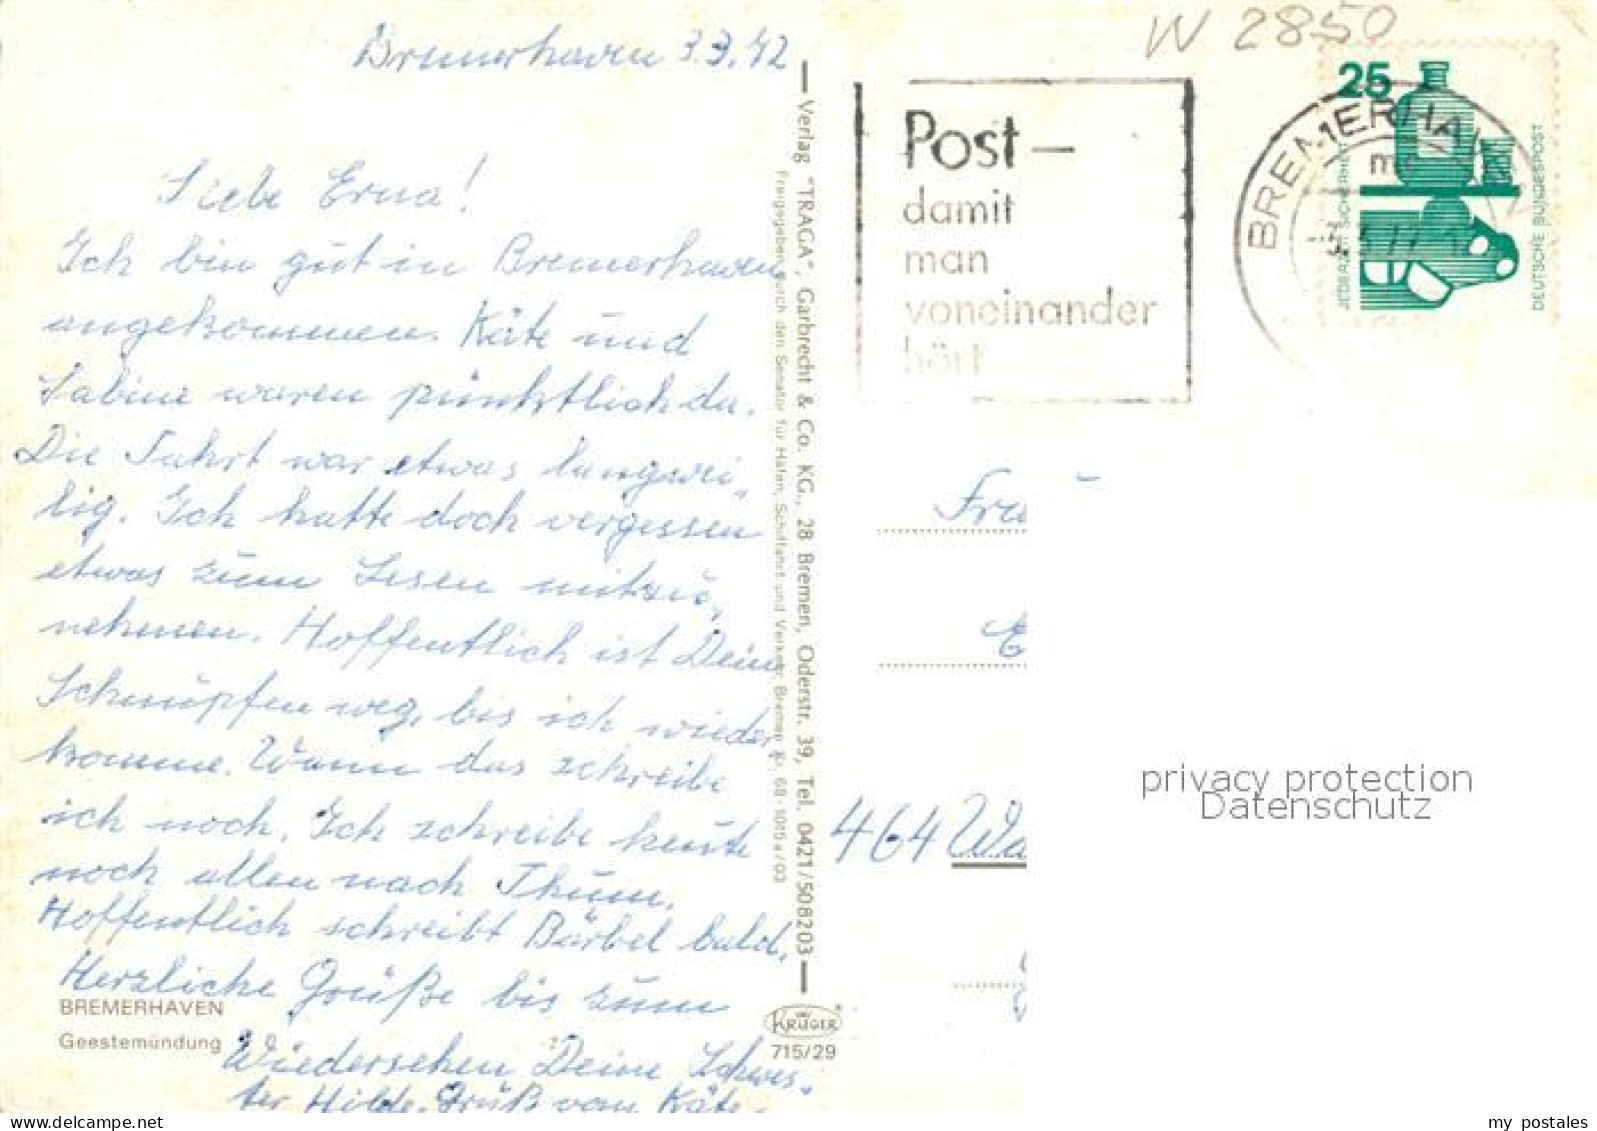 Bremerhaven 3.3.72
Liebe Erna!
Ich bin gut in Bremerhaven
angekommen. Käte und
Sabine waren pünktlich da.
Die Fahrt war etwas langwei-
lig. Ich hatte doch vergessen
etwas zum Lesen mitzu-
nehmen. Hoffentlich ist Dein
Schnupfen weg, bis ich wieder
komme. Wann das schreibe
ich noch. Ich schreibe heute
noch allen nach Thum.
Hoffentlich schreibt Bärbel bald.
Herzliche Grüße bis zum
Wiedersehen Deine Schwes-
ter Hilde. Gruß von Käte.
BREMERHAVEN
Geestemündung
Verlag "TRAGA", Garbrecht & Co. KG., 28 Bremen, Oderstr. 39, Tel. 0421/508203
Freigegeben durch den Senator für Häfen, Schiffahrt und Verkehr, Bremen
KRÜGER
715/29
W 2850
Post –
damit
man
voneinander
hört
25
JEDERZEIT SICHERHEIT
DEUTSCHE BUNDESPOST
Fra
E
464 Wa
privacy protection
Datenschutz
my postales